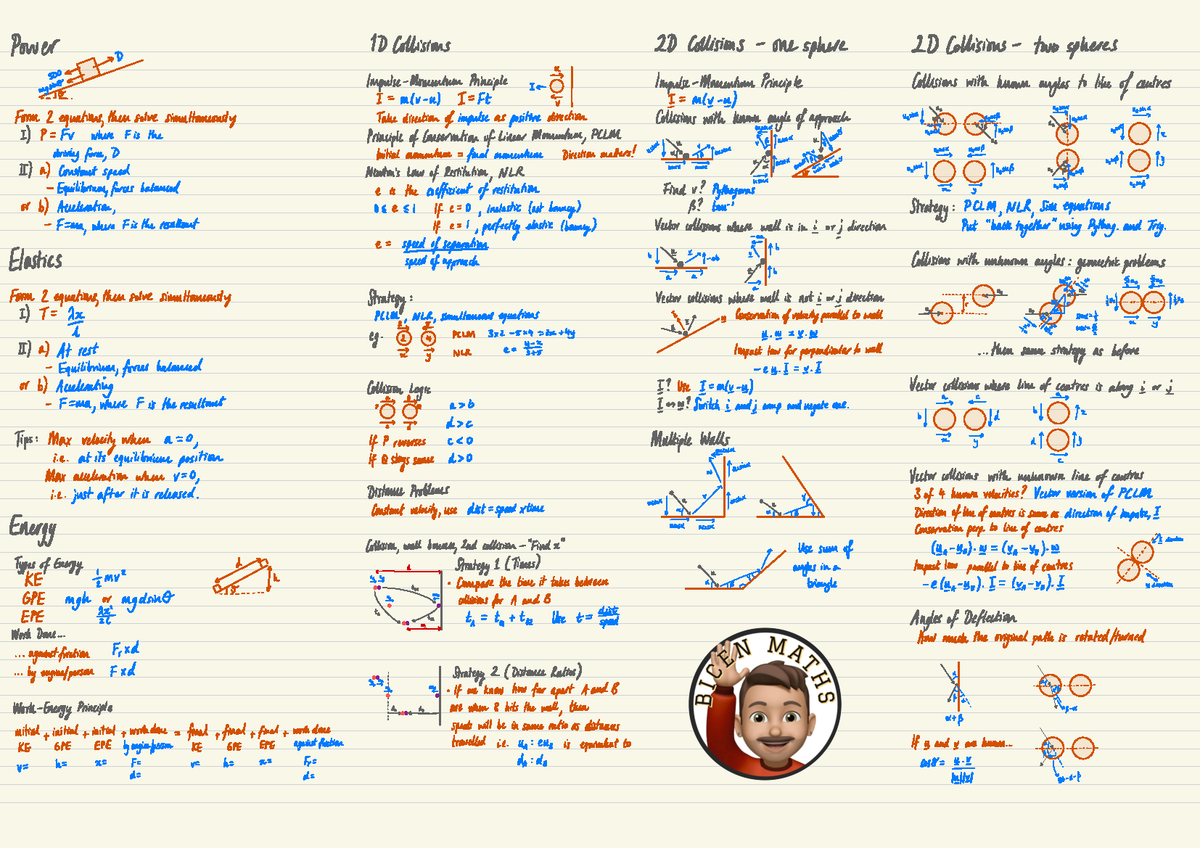 Power
D
Form 2 equations, then solve simultaneously
I) P = Fv where F is the
driving force, D
II) a) Constant speed
- Equilibrium, forces balanced
or b) Acceleration,
- F=ma, where F is the resultant
Elastics
Form 2 equations, then solve simultaneously
I) T = λx
l
II) a) At rest
- Equilibrium, forces balanced
or b) Accelerating
- F=ma, where F is the resultant
Tips: Max velocity when a=0,
i.e. at its equilibrium position
Max acceleration when v=0,
i.e. just after it is released.
Energy
Types of Energy
KE ½mv²
GPE mgh or mgdsinθ
EPE λx²
2l
d
h
Work Done...
... against friction Fr x d
... by engine/person F x d
Work-Energy Principle
initial + initial + initial + work done = final + final + final + work done
KE GPE EPE by engine/person KE GPE EPE against friction
v= h= x= F= v= h= x= Fr=
d= d=
1D Collisions
Impulse-Momentum Principle
I = m(v-u) I = Ft
Take direction of impulse as positive direction
Principle of Conservation of Linear Momentum, PCLM
Initial momentum = final momentum Direction matters!
Newton's Law of Restitution, NLR
e is the coefficient of restitution
0 ≤ e ≤ 1 If e=0, inelastic (not bouncy)
if e=1, perfectly elastic (bouncy)
e = speed of separation
speed of approach
Strategy:
PCLM, NLR, simultaneous equations
eg. 2 4 PCLM 3x2 - 5x4 = 2x + 4y
x y NLR e = y-x
3+5
Collision Logic
a > b
d > c
If P reverses c < 0
If Q stays same d > 0
Distance Problems
Constant velocity, use dist = speed x time
Collision, wall bounce, 2nd collision - "Find x"
Strategy 1 (Times)
• Compare the time it takes between
collisions for A and B
Use t = dist
speed
Strategy 2 (Distance Ratios)
• If we know how far apart A and B
are when B hits the wall, then
speeds will be in same ratio as distances
travelled i.e. is equivalent to
dA : dB
2D Collisions - one sphere
Impulse-Momentum Principle
I = m(v-u)
Collisions with known angle of approach
Find v? Pythagoras
β? tan⁻¹
Vector collisions where wall is in i or j direction
Vector collisions where wall is not i or j direction
Conservation of velocity parallel to wall
u.w = v.w
Impact law for perpendicular to wall
-e u.I = v.I
I? Use I=m(v-u)
I ↔ w? Switch i and j comp and negate one.
Multiple Walls
Use sum of
angles in a
triangle
BICEN MATHS
2D Collisions - two spheres
Collisions with known angles to line of centres
Strategy: PCLM, NLR, Sim equations
Put "back together" using Pythag. and Trig.
Collisions with unknown angles: geometric problems
...then same strategy as before
Vector collisions where line of centres is along i or j
Vector collisions with unknown line of centres
3 of 4 known velocities? Vector version of PCLM
Direction of line of centres is same as direction of impulse, I
Conservation perp. to line of centres
(uA-uB).w = (vA-vB).w
Impact law parallel to line of centres
-e(uA-uB).I = (vA-vB).I
Angles of Deflection
How much the original path is rotated/turned
α+β
If u and v are known...
cosθ = u.v
|u||v|